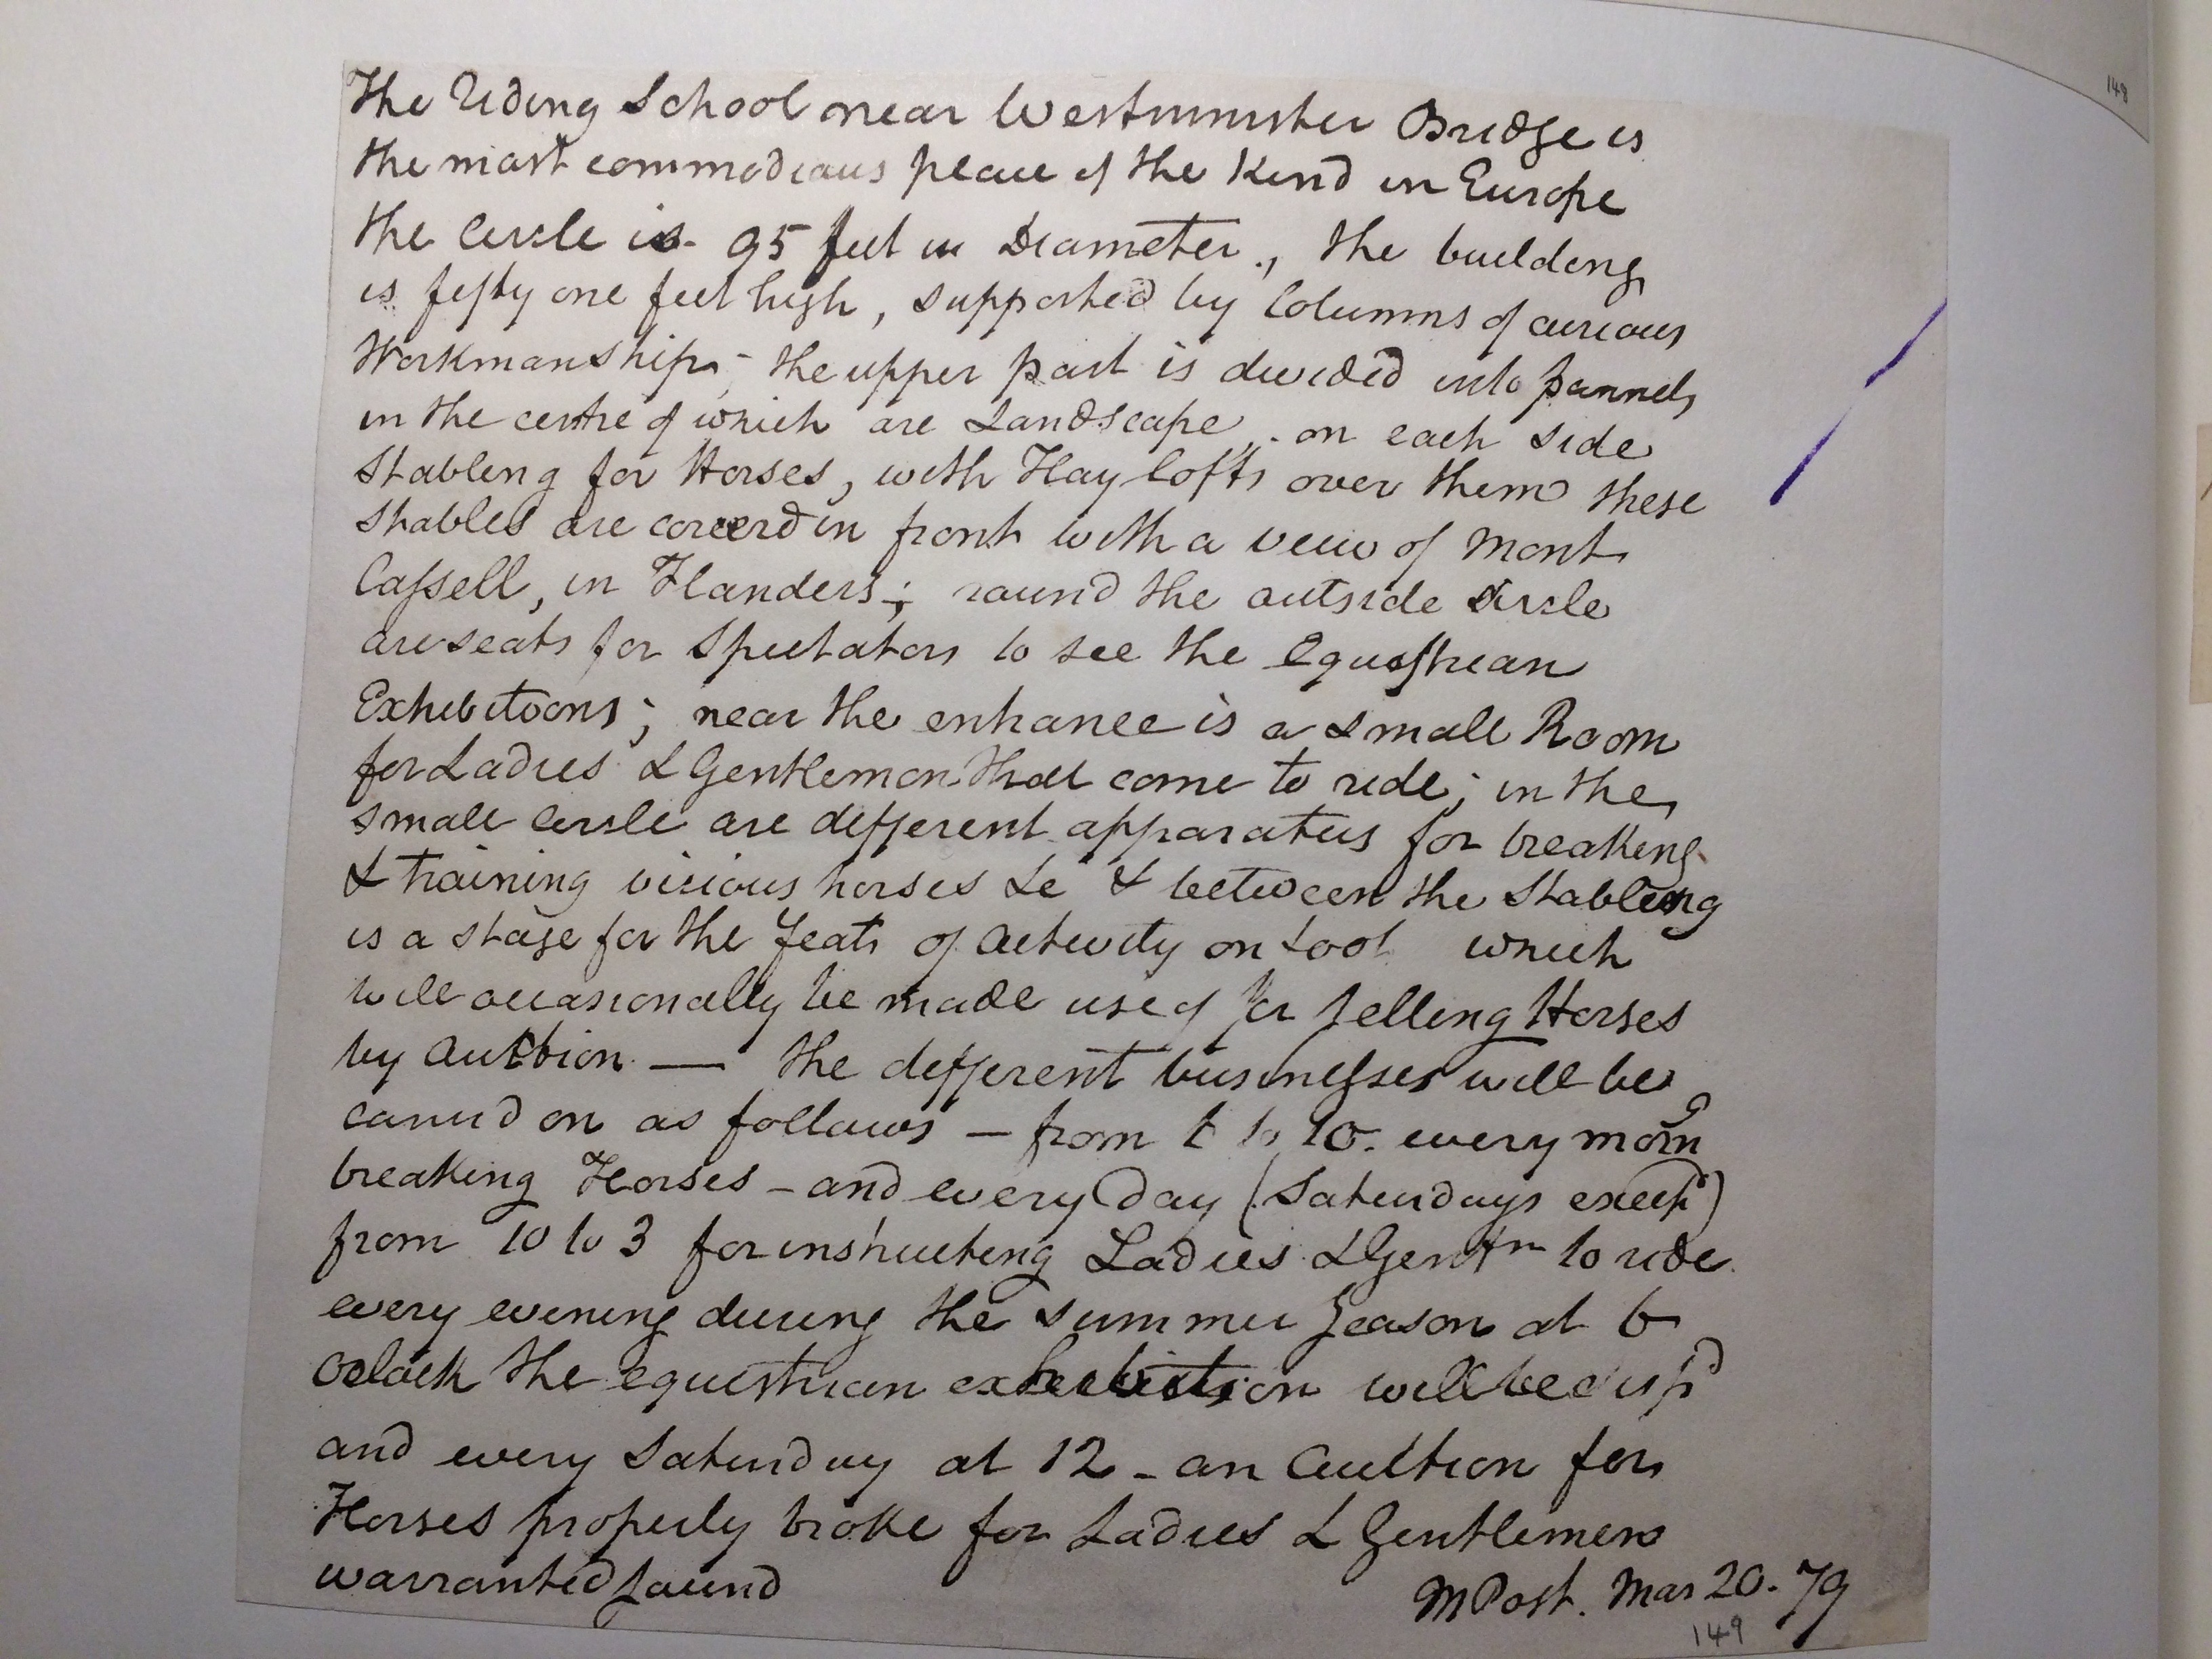 148
The Riding School near Westminster Bridge is
the most commodious place of the Kind in Europe
the Circle is 95 feet in Diameter., the building
is fifty one feet high, supported by Columns of curious
Workmanship - the upper part is divided into pannels
in the centre of which are Landscapes, on each side
Stabling for Horses, with Hay lofts over them these
stables are coverd in front with a veiw of Mont
Cassell, in Flanders; round the outside circle
are seats for Spectators to see the equestrian
Exhibitions; near the entrance is a small Room
for Ladies & Gentlemen that come to ride; in the
small circle are different apparatus for breaking
& training vicious horses &c & between the Stabling
is a stage for the feats of activity on foot which
will occasionally be made use of for selling Horses
by Auction — the different businesses will be
carried on as follows — from to 10. every morng
breaking Horses - and every Day (Saturdays exceptd)
from 10 to 3 for instructing Ladies & Gentn to ride
every evening during the summer season at 6
oclock the equestrian exhibition will be
and every Saturday at 12 - an Auction for
Horses properly broke for Ladies & Gentlemen
warranted sound
M Post. Mar 20. 79
149